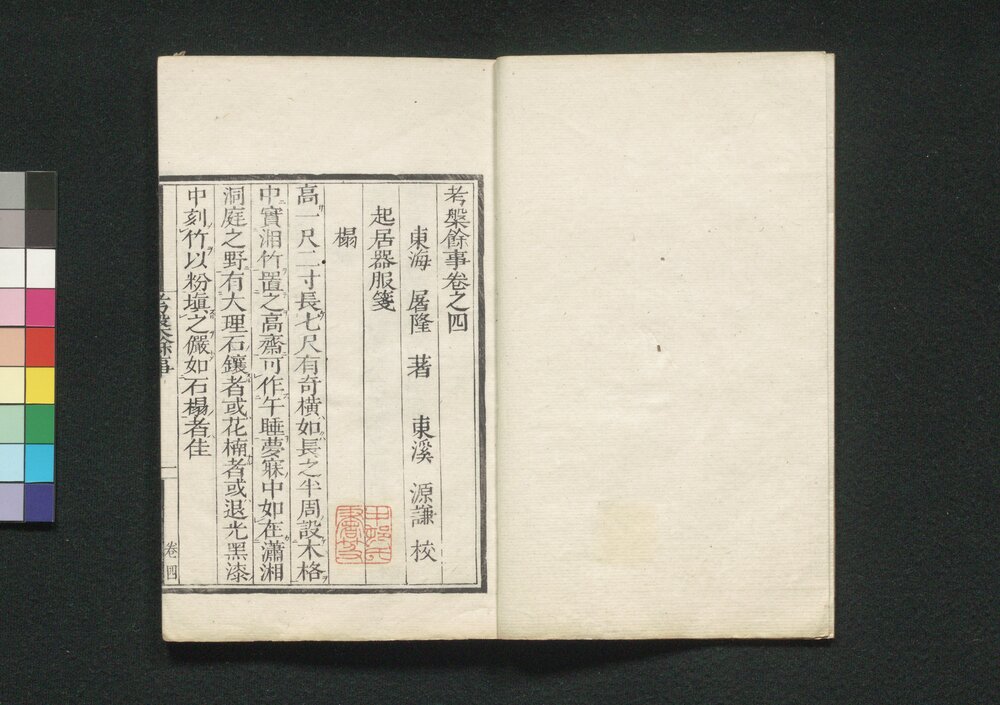 考槃餘事卷之四
東海 屠隆 著 東溪 源謙 校
起居器服箋
榻
高一尺二寸長七尺有奇橫如長之半周設木格
中實湘竹置之高齋可作午睡夢寐中如在瀟湘
洞庭之野有大理石鑲者或花楠者或退光黑漆
中刻竹以粉塡之儼如石榻者佳
考槃餘事
一
卷四